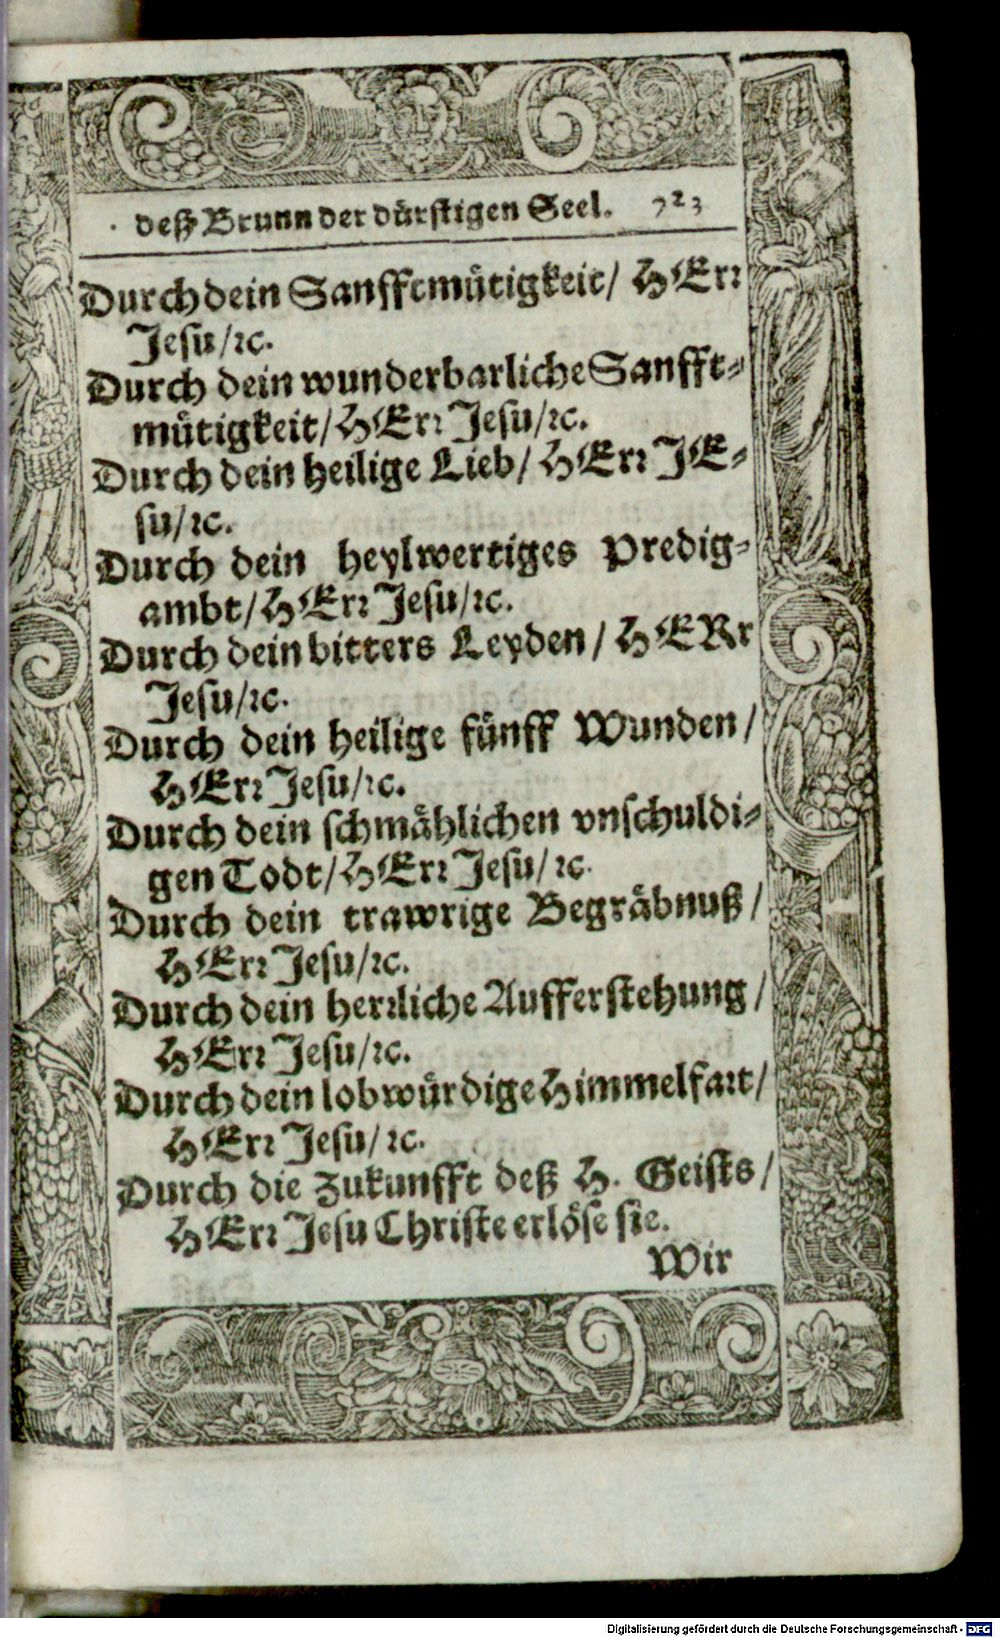 deß Brunn der dürstigen Seel. 723
Durch dein Sanfftmütigkeit/ HErr
Jesu/ꝛc.
Durch dein wunderbarliche Sanfft-
mütigkeit/ HErꝛ Jesu/ꝛc.
Durch dein heilige Lieb/ HErꝛ JE-
su/ꝛc.
Durch dein heylwertiges Predig-
ambt/ HErꝛ Jesu/ꝛc.
Durch dein bitters Leyden/ HERr
Jesu/ꝛc.
Durch dein heilige fünff Wunden/
HErꝛ Jesu/ꝛc.
Durch dein schmählichen vnschuldi-
gen Todt/ HErꝛ Jesu/ꝛc.
Durch dein trawrige Begräbnuß/
HErꝛ Jesu/ꝛc.
Durch dein herꝛliche Aufferstehung/
HErꝛ Jesu/ꝛc.
Durch dein lobwürdige Himmelfaꝛt/
HErꝛ Jesu/ꝛc.
Durch die Zukunfft deß H. Geists/
HErꝛ Jesu Christe erlöse sie.
Wir
Digitalisierung gefördert durch die Deutsche Forschungsgemeinschaft - DFG